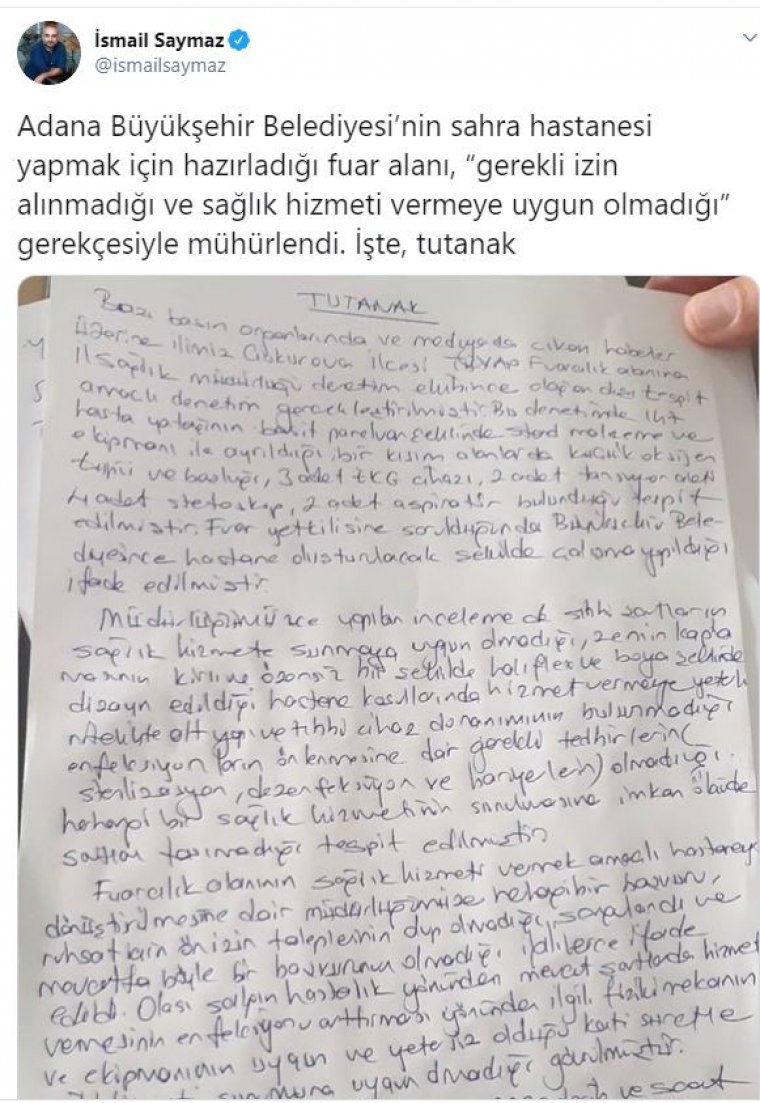 İsmail Saymaz
@ismailsaymaz
Adana Büyükşehir Belediyesi’nin sahra hastanesi
yapmak için hazırladığı fuar alanı, “gerekli izin
alınmadığı ve sağlık hizmeti vermeye uygun olmadığı”
gerekçesiyle mühürlendi. İşte, tutanak
TUTANAK
Bazı basın organlarında ve medyada çıkan haberler
üzerine ilimiz Çukurova ilçesi TÜYAP Fuarcılık alanına
İl Sağlık müdürlüğü denetim ekibince olağan dışı tespit
amaçlı denetim gerçekleştirilmiştir. Bu denetimde 147
hasta yatağının basit paravan şeklinde stand malzeme ve
ekipmanı ile ayrıldığı bir kısım alanlarda küçük oksijen
tüpü ve başlığı, 3 adet EKG cihazı, 2 adet tansiyon aleti
4 adet stetoskop, 2 adet aspiratör bulunduğu tespit
edilmiştir. Fuar yetkilisine sorulduğunda Büyükşehir Bele-
diyesince hastane oluşturulacak şekilde çalışma yapıldığı
ifade edilmiştir.
Müdürlüğümüzce yapılan incelemede sıhhi şartların
sağlık hizmete sunmaya uygun olmadığı, zemin kapla
masının kirli ve özensiz bir şekilde halıflex ve boya şeklinde
dizayn edildiği hastene koşullarında hizmet vermeye yeterli
nitelikte alt yapı ve tıbbi cihaz donanımının bulunmadığı
enfeksiyonların önlenmesine dair gerekli tedbirlerin(
sterilizasyon, dezenfeksiyon ve hariyelerin) olmadığı.
herhangi bir sağlık hizmetinin sunulmasına imkan ölçüde
şartları taşımadığı tespit edilmiştir
Fuarcılık alanının sağlık hizmeti vermek amaçlı hastaneye
dönüştürülmesine dair müdürlüğümüze herhangi bir başvuru,
ruhsatların ön izin taleplerinin olup olmadığı sorgulandı ve
mevcutta böyle bir başvurunun olmadığı ifade
edildi. Olası salgın hastalık yönünden mevcut şartlarda hizmet
vermesinin enfeksiyonu arttırması yönünden ilgili fiziki mekanın
ve ekipmanının uygun ve yetersiz olduğu kati suretle
uygun olmadığı görülmüştür.